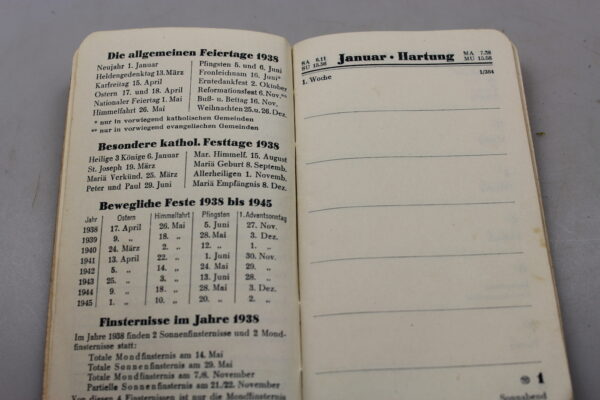 Die allgemeinen Feiertage 1938
Neujahr 1. Januar
Heldengedenktag 13. März
Karfreitag 15. April
Ostern 17. und 18. April
Nationaler Feiertag 1. Mai
Himmelfahrt 26. Mai
Pfingsten 5. und 6. Juni
Fronleichnam 16. Juni*
Erntedankfest 2. Oktober
Reformationsfest 6. Nov.**
Buß- u. Bettag 16. Nov.
Weihnachten 25. u. 26. Dez.
* nur in vorwiegend katholischen Gemeinden
** nur in vorwiegend evangelischen Gemeinden
Besondere kathol. Festtage 1938
Heilige 3 Könige 6. Januar
St. Joseph 19. März
Mariä Verkünd. 25. März
Peter und Paul 29. Juni
Mar. Himmelf. 15. August
Mariä Geburt 8. Septemb.
Allerheiligen 1. Novemb.
Mariä Empfängnis 8. Dez.
Bewegliche Feste 1938 bis 1945
Jahr Ostern Himmelfahrt Pfingsten 1. Adventsonntag
1938 17. April 26. Mai 5. Juni 27. Nov.
1939 9. „ 18. „ 28. Mai 3. Dez.
1940 24. März 2. „ 12. „ 1. „
1941 13. April 22. „ 1. Juni 30. Nov.
1942 5. „ 14. „ 24. Mai 29. „
1943 25. „ 3. „ 13. Juni 28. „
1944 9. „ 18. „ 28. Mai 3. Dez.
1945 1. „ 10. „ 20. „ 2. „
Finsternisse im Jahre 1938
Im Jahre 1938 finden 2 Sonnenfinsternisse und 2 Mond-
finsternisse statt:
Totale Mondfinsternis am 14. Mai
Totale Sonnenfinsternis am 29. Mai
Totale Mondfinsternis am 7./8. November
Partielle Sonnenfinsternis am 21./22. November
Von diesen 4 Finsternissen ist nur die Mondfinsternis
SA 8.11
SU 15.56
Januar · Hartung
MA 7.58
MU 15.58
1. Woche
1/364
1
Sonnabend